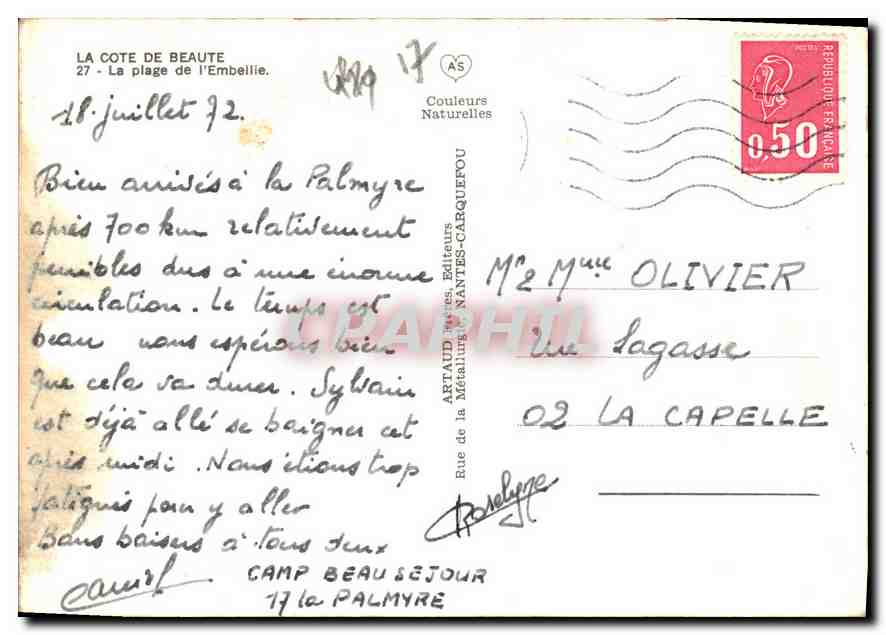 LA COTE DE BEAUTE
27 - La plage de l'Embellie.
17
AS
Couleurs
Naturelles
POSTES
RÉPUBLIQUE FRANÇAISE
0,50
18. juillet 72.
Bien arrivés à la Palmyre
après 700 km relativement
penibles dus à une énorme
circulation. Le temps est
beau nous espérons bien
que cela va durer. Sylvain
est déjà allé se baigner cet
après midi. Nous étions trop
fatigués pour y aller
Bons baisers à tous deux
Roselyne
CAMP BEAU SEJOUR
17 la PALMYRE
ARTAUD Frères, Editeurs
Rue de la Métallurgie, NANTES-CARQUEFOU
Mr & Mme OLIVIER
rue Lagasse
02 LA CAPELLE
CPAPHIL